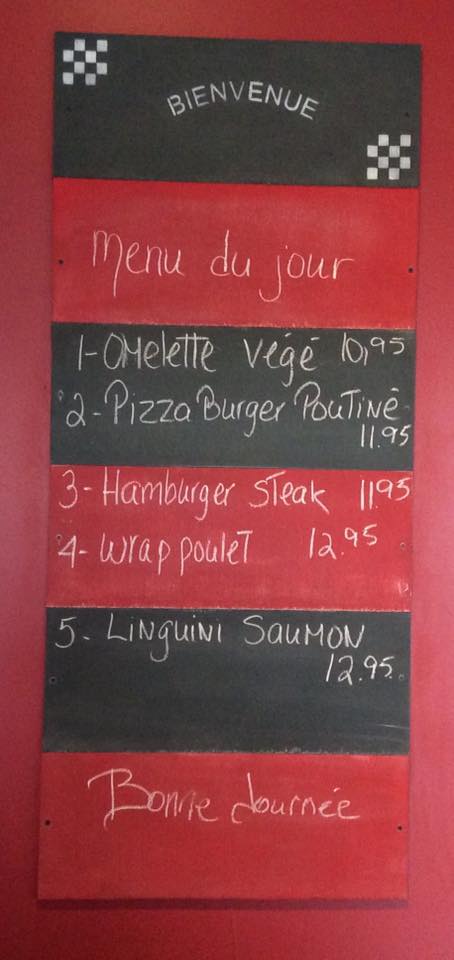 BIENVENUE
Menu du jour
1-Omelette végé 10,95
2-Pizza Burger Poutine
11.95
3-Hamburger steak 11.95
4-wrap poulet 12.95
5. Linguini Saumon
12.95
Bonne Journée